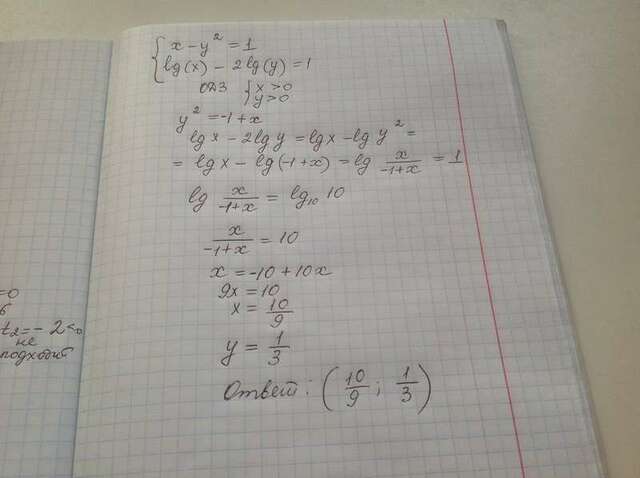 x - y² = 1
lg(x) - 2lg(y) = 1
ОДЗ { x > 0
y > 0
y² = -1 + x
lg x - 2lg y = lg x - lg y² =
= lg x - lg(-1+x) = lg x/(-1+x) = 1
lg x/(-1+x) = lg₁₀ 10
x/(-1+x) = 10
x = -10 + 10x
9x = 10
x = 10/9
y = 1/3
Ответ: (10/9; 1/3)
=0
t₂ = -2 <0
не
подходит